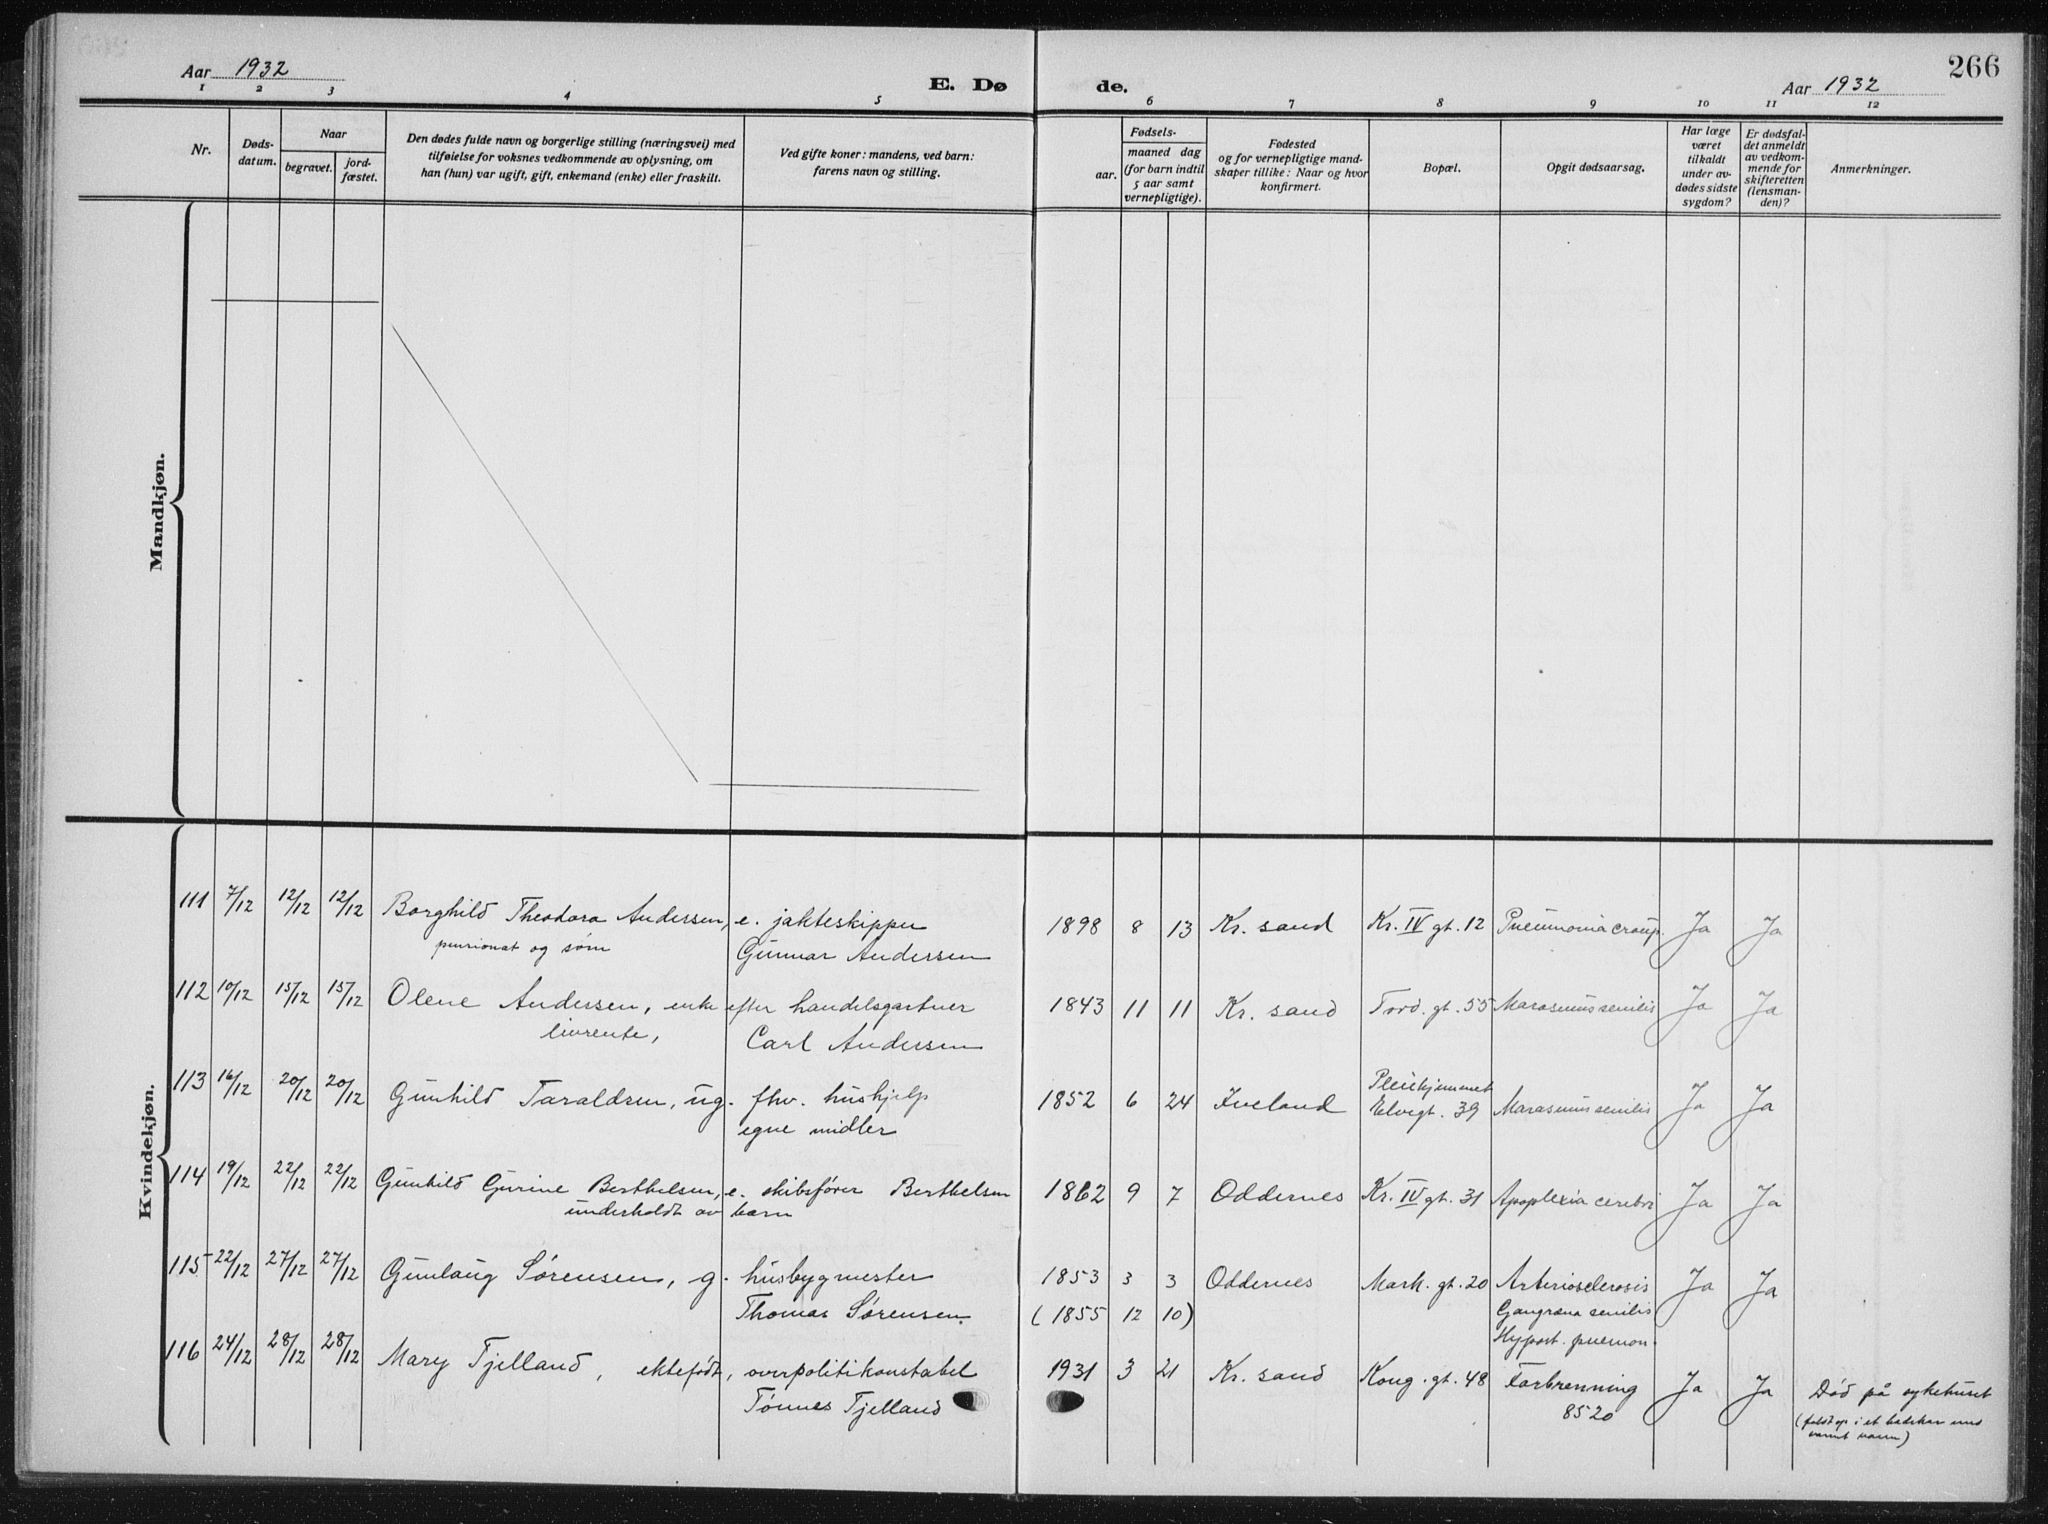 266
Aar 1932
E. Dø de.
Aar 1932
1 2 3 4 5 6 7 8 9 10 11 12
Nr.
Døds-
datum.
Naar
begravet.
jord-
fæstet.
Den dødes fulde navn og borgerlige stilling (næringsvei) med
tilføielse for voksnes vedkommende av oplysning, om
han (hun) var ugift, gift, enkemand (enke) eller fraskilt.
Ved gifte koner: mandens, ved barn:
farens navn og stilling.
Fødsels-
aar.
maaned dag
(for barn indtil
5 aar samt
vernepligtige).
Fødested
og for vernepligtige mand-
skaper tillike: Naar og hvor
konfirmert.
Bopæl.
Opgit dødsaarsag.
Har læge
været
tilkaldt
under av-
dødes sidste
sygdom?
Er dødsfal-
det anmeldt
av vedkom-
mende for
skifteretten
(lensman-
den)?
Anmerkninger.
Mandkjøn.
Kvindekjøn.
111 7/12 12/12 12/12 Borghild Theodora Andersen, e. jakteskipper 1898 8 13 Kr. sand Kr. IV gt. 12 Pneumonia croup. Ja Ja
pensionat og søm Gunnar Andersen
112 10/12 15/12 15/12 Olene Andersen, enke efter handelsgartner 1843 11 11 Kr. sand Tord. gt. 55 Marasmus senilis Ja Ja
livrente, Carl Andersen
113 16/12 20/12 20/12 Gunhild Taraldsen, ug. fhv. hushjelp 1852 6 24 Iveland Pleiehjemmet Marasmus senilis Ja Ja
egne midler Elvegt. 39
114 19/12 22/12 22/12 Gunhild Gurine Berthelsen, e. skibsfører Berthelsen 1862 9 7 Oddernes Kr. IV gt. 31 Apoplexia cerebri Ja Ja
underholdt av barn
115 22/12 27/12 27/12 Gunlaug Sørensen, g. husbygmester 1853 3 3 Oddernes Mark. gt. 20 Arteriosclerosis Ja Ja
Thomas Sørensen. (1855 12 10) Gangræna senilis
Hypost. pneumon.
116 24/12 28/12 28/12 Mary Tjelland, ektefødt, overpolitikonstabel 1931 3 21 Kr. sand Kong. gt. 48 Forbrenning Ja Ja Død på sykehuset
Tønnes Tjelland 8520 (faldt op i et badekar med
varmt vann)